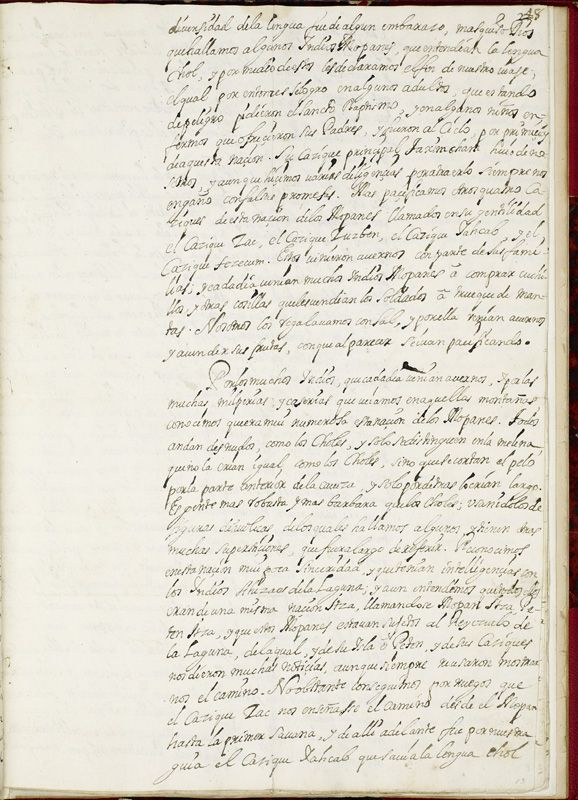 48
diversidad de la lengua fue de algun embarazo, mas quiso Dios
que hallamos algunos Indios Mopanes, que entendian la lengua
Chol, y por medio de estos les declaramos el fin de nuestro viaje;
el qual por entonces se logro en algunos adultos, que estando
de peligro pidieron el santo Baptismo, y en algunos niños en-
fermos que ofrecieron sus Padres, y fueron al Cielo, por primicias
de aquesta nacion. Su Cazique principal Taximchan huio de no-
sotros, y aunque hicimos varias diligencias para traerlo siempre nos
engaño con falsas promesas. Mas pacificamos otros quatro Ca-
ziques de esta nacion de los Mopanes llamados en su gentilidad
el Cazique Zac, el Cazique Tuzben, el Cazique Yahcab y el
Cazique Tezecum. Estos vinieron a vernos con parte de sus fami-
lias; y cada dia venian muchos Indios Mopanes a comprar cuchi-
llos, y otras cosillas que les vendian los soldados a trueque de man-
tas. Nosotros los regalavamos con sal, y por ella venian a vernos
y a vender sus frutas, con que al parecer se ivan pacificando.
Por los muchos Indios, que cada dia venian a vernos, y por las
muchas milperias, y caserias que veiamos en aquellas montañas
conocimos que era mui numerosa esta nacion de los Mopanes. Todos
andan desnudos, como los Choles, y solo se distinguen en la melena
que no la crian igual como los Choles, sino que se cortan el pelo
por la parte anterior de la caveza, y solo por detras lo crian largo.
Es gente mas robusta y mas barbara que los Choles; usan idolos de
figuras diavolicas, de los quales hallamos algunos y tienen otras
muchas supersticiones, que fuera largo de referir. Reconocimos
en esta nacion mui poca sinceridad y que tenian inteligencias con
los Indios Ahitzaes de la Laguna; y aun entendimos que todos ellos
eran de una misma nacion Itza, llamandose Mopan Itza, Pe-
ten Itza, y que estos Mopanes estavan sujetos al Reyezuelo de
la Laguna, de la qual, y de su Isla o Peten, y de sus Caziques
nos dieron muchas noticias, aunque siempre rehusaron mostrar-
nos el camino. No obstante conseguimos por ruegos que
el Cazique Zac nos enseñase el camino desde el Mopan
hasta la primer savana, y de alli adelante fue por nuestra
guia el Cazique Yahcab que savia la lengua Chol